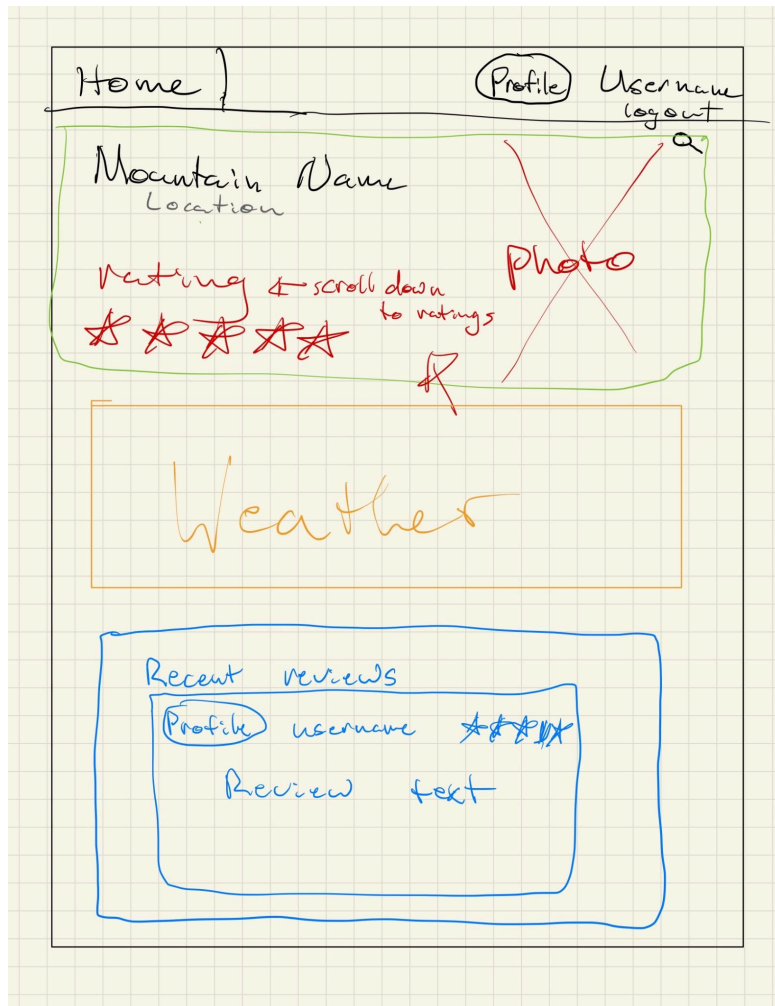 Home Profile Username
logout
Mountain Name
Location
photo
rating ← scroll down
to ratings
Weather
Recent reviews
Profile username
Review text